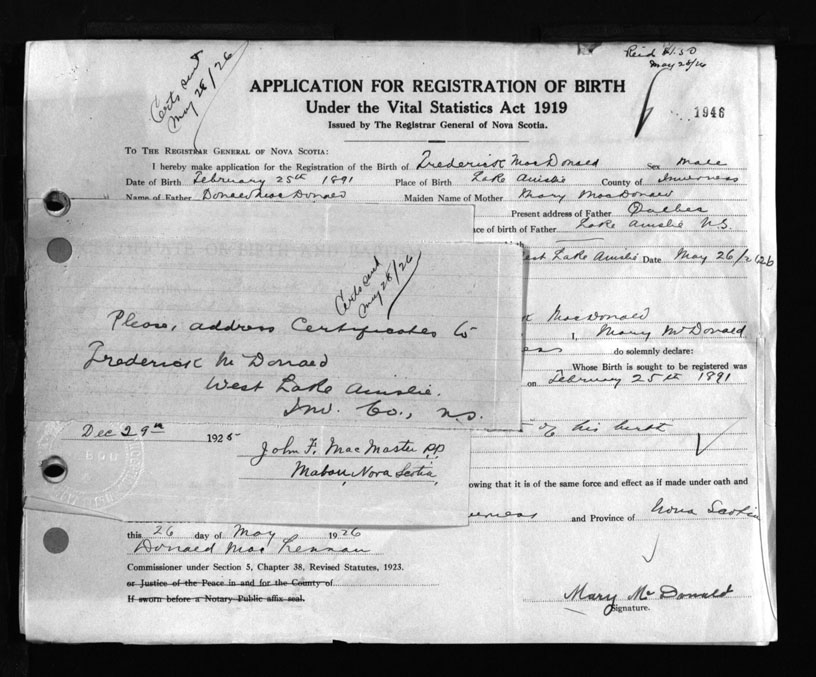 Certs sent
May 28/26
Reid H.50
May 26/26
APPLICATION FOR REGISTRATION OF BIRTH
Under the Vital Statistics Act 1919
Issued by The Registrar General of Nova Scotia.
1946
TO THE REGISTRAR GENERAL OF NOVA SCOTIA:
I hereby make application for the Registration of the Birth of Frederick MacDonald Sex male
Date of Birth February 25th 1891 Place of Birth Lake Ainslie County of Inverness
Name of Father Donald MacDonald Maiden Name of Mother Mary MacDonald
Present address of Father Quebec
ce of birth of Father Lake Ainslie N.S.
est Lake Ainslie Date May 26/26
Certs sent
May 28/26
Please, address Certificates to
Frederick McDonald
West Lake Ainslie.
Inv. Co., N.S.
k MacDonald
I, Mary McDonald
ess do solemnly declare:
Whose Birth is sought to be registered was
on February 25th 1891
of his birth
Dec 29th 1925
John F. MacMaster P.P.
Mabou, Nova Scotia
owing that it is of the same force and effect as if made under oath and
erness and Province of Nova Scotia
this 26 day of May 1926
Donald MacLennan
Commissioner under Section 5, Chapter 38, Revised Statutes, 1923.
or Justice of the Peace in and for the County of
If sworn before a Notary Public affix seal.
Mary McDonald
Signature.